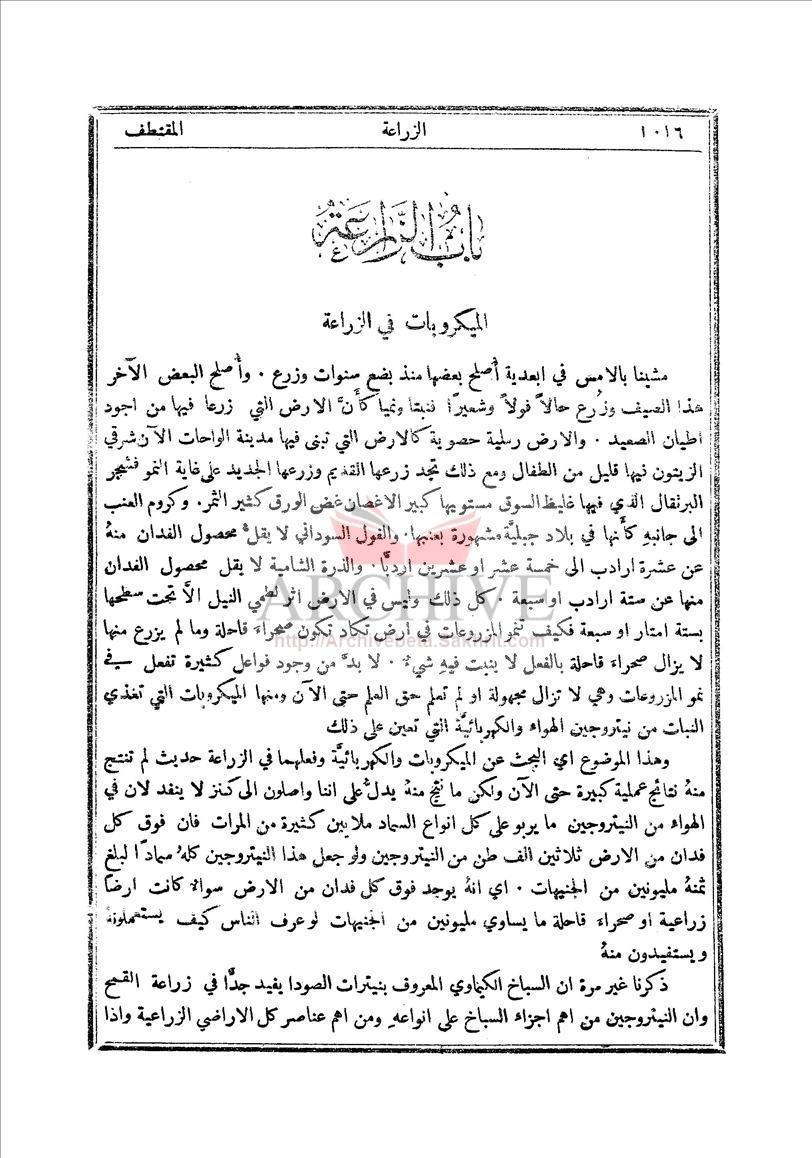 ١٠١٦ الزراعة المقتطف
باب الزراعة
الميكروبات في الزراعة
مشينا بالامس في ابعدية أُصلح بعضها منذ بضع سنوات وزرع . وأُصلح البعض الآخر
هذا الصيف وزُرع حالاً فولاً وشعيرًا فنبتا ونميا كأنَّ الارض التي زرعا فيها من اجود
اطيان الصعيد . والارض رملية حصوية كالارض التي تبنى فيها مدينة الواحات الآن شرقي
الزيتون فيها قليل من الطفال ومع ذلك تجد زرعها القديم وزرعها الجديد على غاية النمو فشجر
البرتقال الذي فيها غليظ السوق مستويها كبير الاغصان غض الورق كثير الثمر . وكروم العنب
الى جانبهِ كأنها في بلاد جبليَّة مشهورة بعنبها . والفول السوداني لا يقلُّ محصول الفدان منهُ
عن عشرة ارادب الى خمسة عشر او عشرين اردبًّا . والذرة الشامية لا يقل محصول الفدان
منها عن ستة ارادب او سبعة . كل ذلك وليس في الارض اثر لطمي النيل الاَّ تحت سطحها
بستة امتار او سبعة فكيف تنمو المزروعات في ارض تكاد تكون صحراءَ قاحلة وما لم يزرع منها
لا يزال صحراءَ قاحلة بالفعل لا ينبت فيهِ شيءٌ . لا بدَّ من وجود فواعل كثيرة تفعل في
نمو المزروعات وهي لا تزال مجهولة او لم تعلم حق العلم حتى الآن ومنها الميكروبات التي تغذي
النبات من نيتروجين الهواء والكهربائيَّة التي تعين على ذلك
وهذا الموضوع اي البحث عن الميكروبات والكهربائيَّة وفعلهما في الزراعة حديث لم تنتج
منهُ نتائج عملية كبيرة حتى الآن ولكن ما نتج منهُ يدلُّ على اننا واصلون الى كنز لا ينفد لان في
الهواء من النيتروجين ما يربو على كل انواع السماد ملايين كثيرة من المرات فان فوق كل
فدان من الارض ثلاثين الف طن من النيتروجين ولو جعل هذا النيتروجين كلهُ سمادًا لبلغ
ثمنهُ مليونين من الجنيهات . اي انهُ يوجد فوق كل فدان من الارض سواءٌ كانت ارضًا
زراعية او صحراءَ قاحلة ما يساوي مليونين من الجنيهات لو عرف الناس كيف يستعملونهُ
ويستفيدون منهُ
ذكرنا غير مرة ان السباخ الكيماوي المعروف بنيترات الصودا يفيد جدًّا في زراعة القمح
وان النيتروجين من اهم اجزاء السباخ على انواعهِ ومن اهم عناصر كل الاراضي الزراعية واذا
ARCHIVE
http://Archivebeta.Sakhrit.com